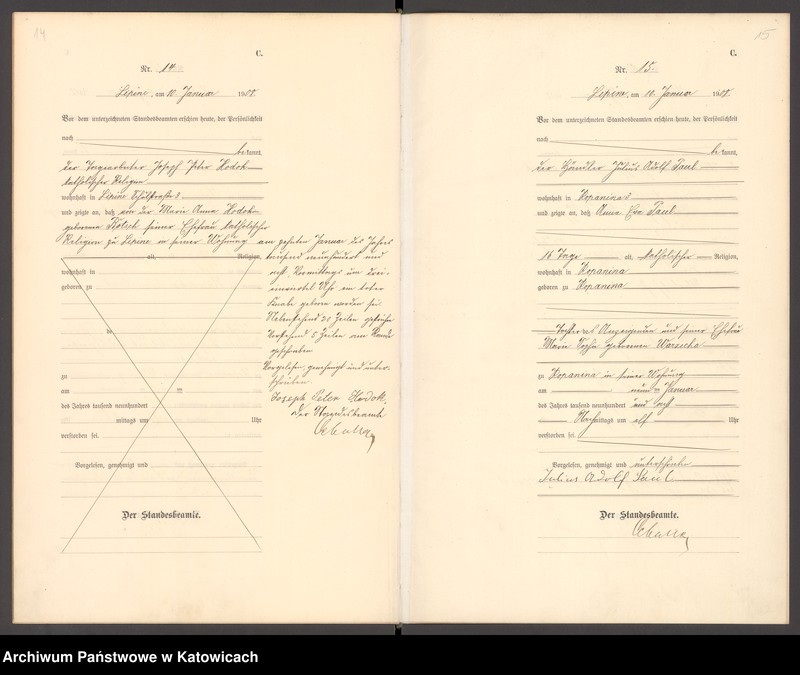 14
C.
Nr. 14
Lipine, am 10. Januar 1908.
Vor dem unterzeichneten Standesbeamten erschien heute, der Persönlichkeit
nach
be kannt,
der Joseph Peter Kodok
katholischer Religion
wohnhaft in Lipine
und zeigte an, daß von der Marie Anna Kodok
geborene seiner Ehefrau katholischer
Religion zu Lipine in seiner Wohnung am zehnten Januar des Jahres
tausend neunhundert und
acht Vormittags um drei
Uhr ein toter
Knabe geboren worden sei
Nebenstehend 20 Zeilen gestrichen
Vorstehend 5 Zeilen am Rande
geschrieben
Vorgelesen, genehmigt und unter-
schrieben
Joseph Peter Kodok.
Der Standesbeamte.
alt, Religion,
wohnhaft in
geboren zu
be
zu
am ten
des Jahres tausend neunhundert
mittags um Uhr
verstorben sei.
Vorgelesen, genehmigt und
Der Standesbeamte.
15
C.
Nr. 15.
Lipine, am 10. Januar 1908.
Vor dem unterzeichneten Standesbeamten erschien heute, der Persönlichkeit
nach
be kannt,
der Händler Julius Adolf Paul
wohnhaft in Kopanina
und zeigte an, daß Anna Eva Paul
16 Tage alt, katholischer Religion,
wohnhaft in Kopanina
geboren zu Kopanina
Tochter des Anzeigenden und seiner Ehefrau
Marie geborenen
zu Kopanina in seiner Wohnung
am neunten Januar
des Jahres tausend neunhundert und acht
Nachmittags um elf Uhr
verstorben sei.
Vorgelesen, genehmigt und unterschrieben
Julius Adolf Paul
Der Standesbeamte.
Archiwum Państwowe w Katowicach